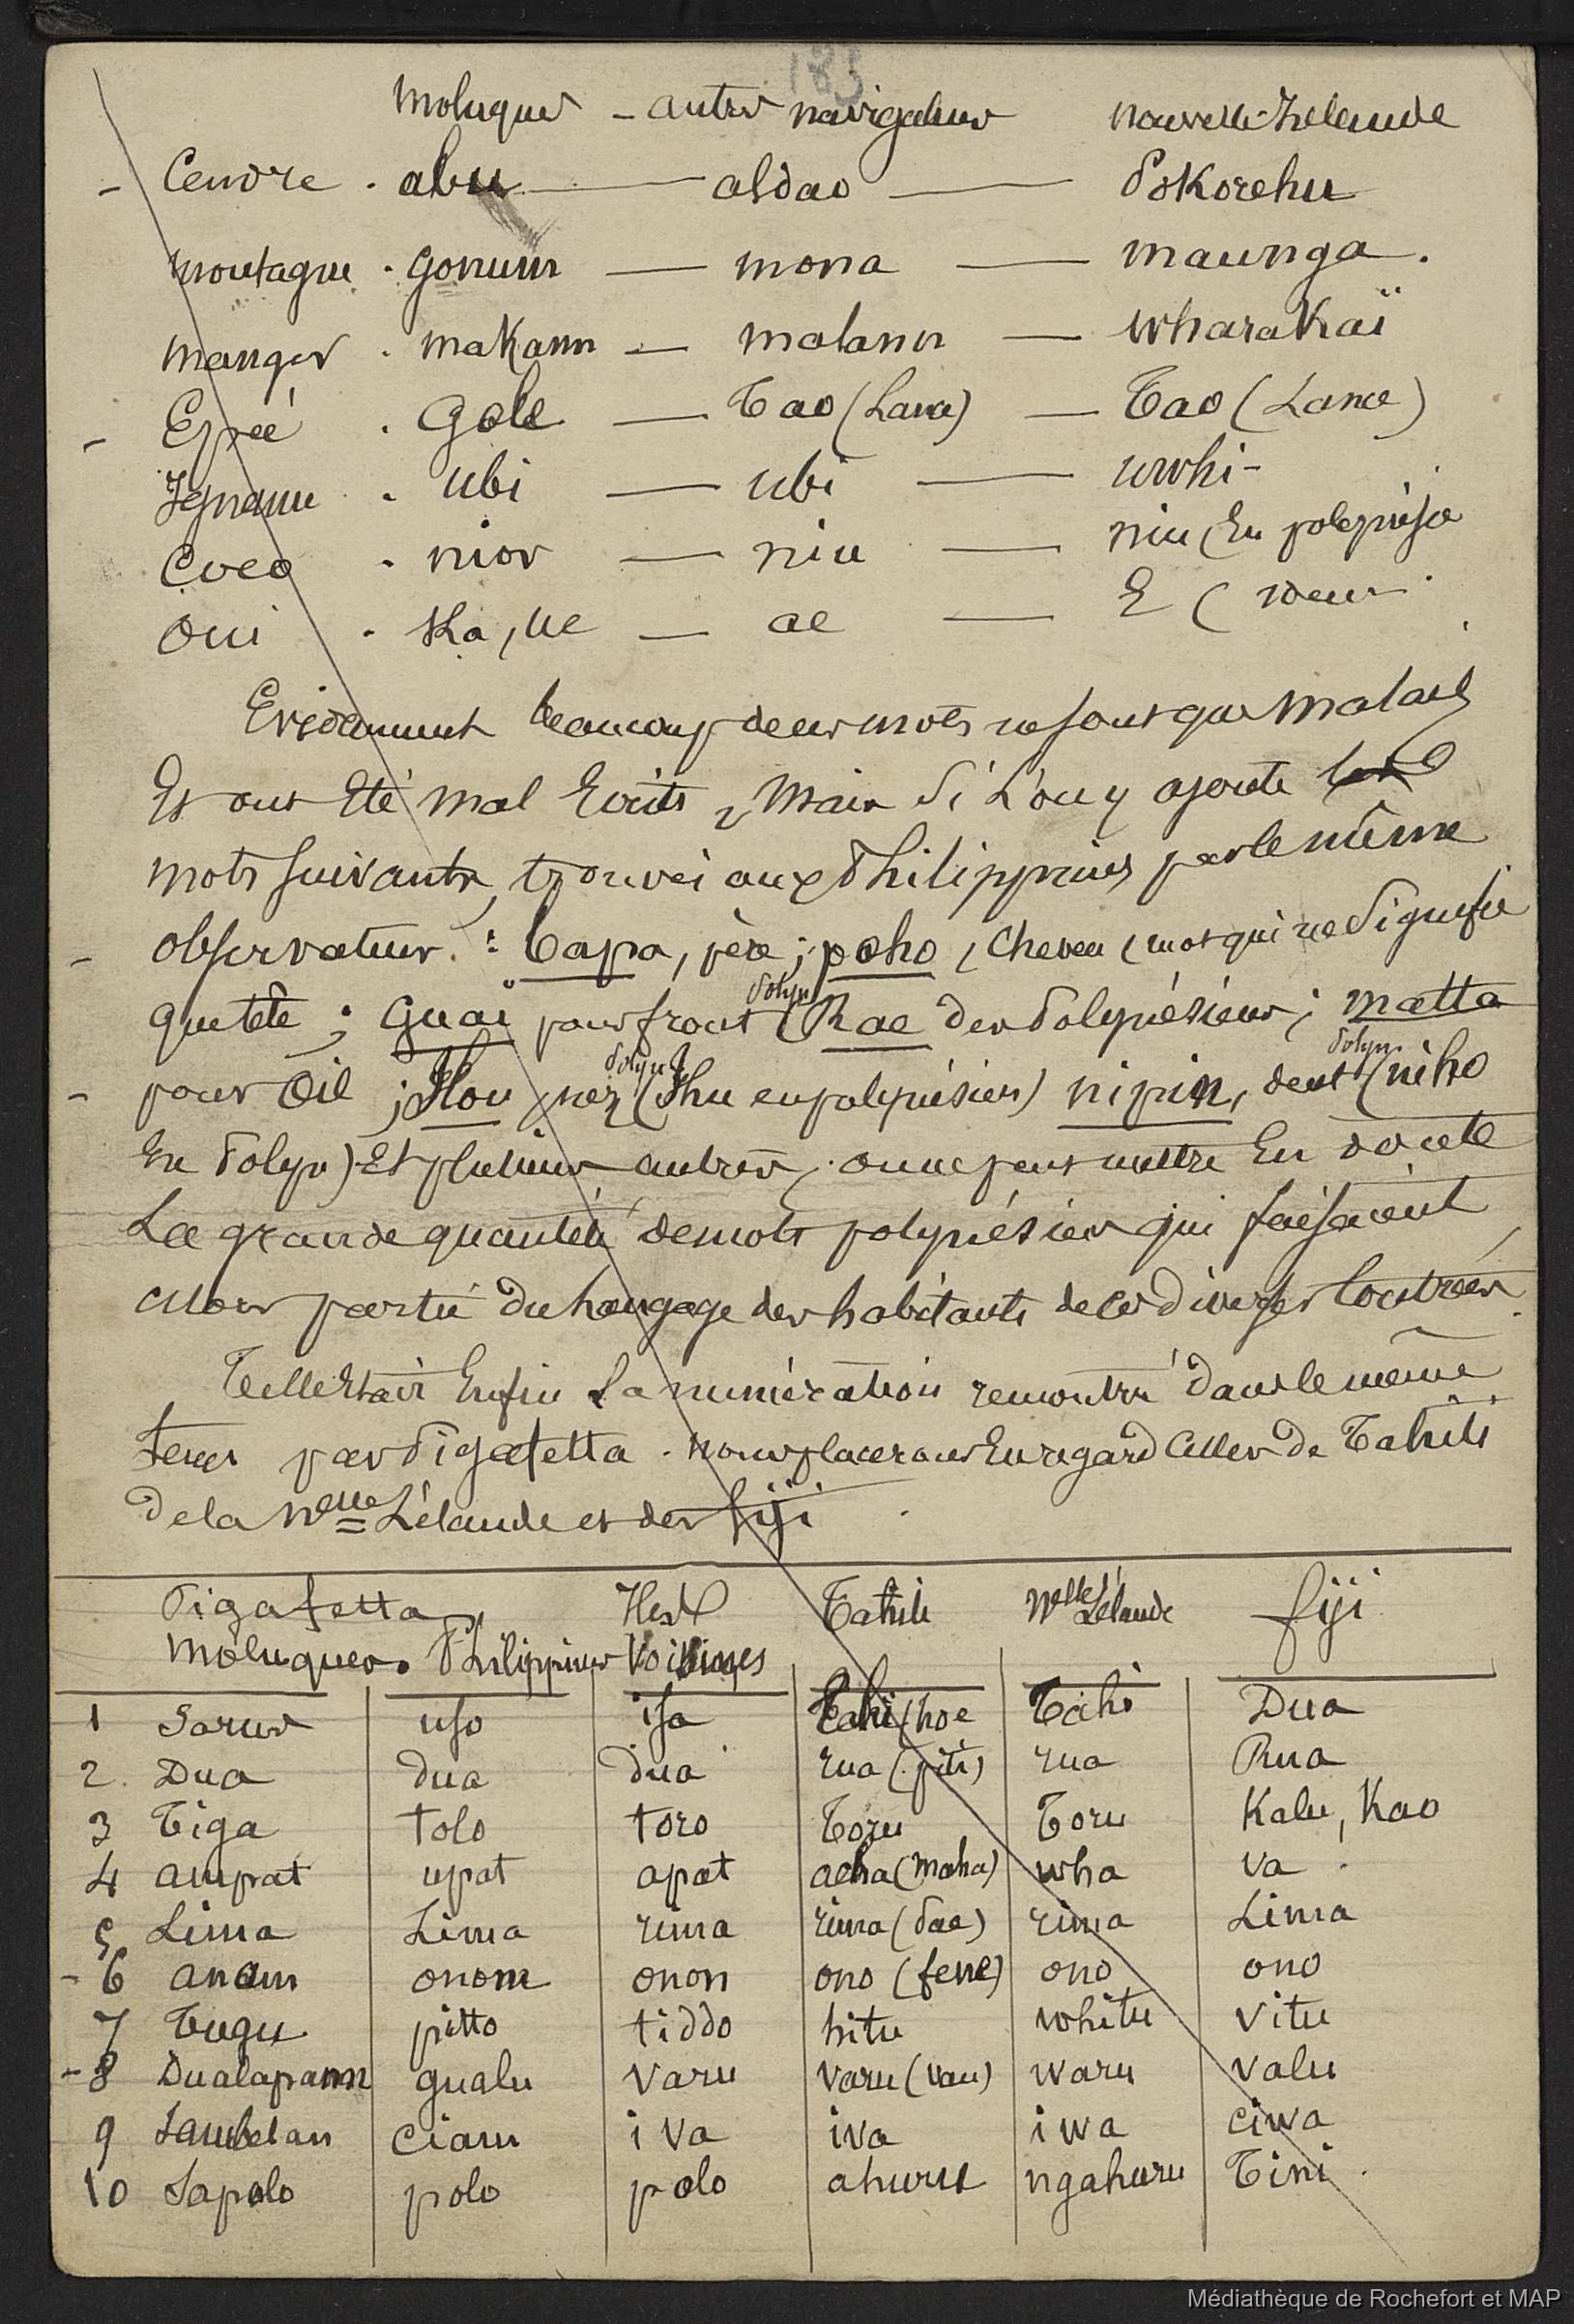 183
Moluques - autres navigateurs nouvelle-Zelande
- Cendre . abu — aldao — Pokorehu
montagne . gonum — mona — maunga.
manger . makann — malann — wharakaï
- Epée . gole — Tao (Lance) — Tao (Lance)
Igname . ubi — ubi — uwhi -
Coco . nior — niu — niu (En polynésie
Oui . Ka, ue — ae — E (
Evidemment beaucoup de ces mots ne sont que malais
Et ont Eté mal Ecrits, Mais si L'on y ajoute les
mots suivants, trouvés aux Philippines par le même
- observateur : bapa, père ; poho, cheveu, mot qui ne signifie
que tête ; guaï pour front (Rae des Polynésiens ; matta
polyn
- pour Oeil ; Ilou, nez (Ihu en polynésien) nipin, dent (niho
polyn polyn
En Polyn) Et plusieurs autres, on ne peut mettre En doute
La grande quantité de mots polynésiens qui faisaient
alors partie du langage des habitants de ces diverses Contrées.
Telle Etait Enfin La numération rencontrée dans le même
temps par Pigafetta. nous placerons En regard Celles de Tahiti
de la Nelle Zélande et des fiji.
Pigafetta Iles Tahiti Nelle Zélande fiji
Moluques. Philippines Voisines
1 Sarus uso isa Tahi (hoe Tahi Dua
2. Dua dua dua rua (piti) rua Rua
3 Tiga tolo toro Toru Toru Kalu, Kao
4 ampat upat apat aeha (maha) wha va
5 Lima Lima rima rima (pae) rima Lima
- 6 anam onom onon ono (fene) ono ono
7 Tugu pitto tiddo hitu whitu vitu
- 8 Dualapann gualu varu varu (vau) waru valu
9 Sambelan ciam iva iva iwa ciwa
10 Sapolo polo polo ahuru ngahuru Tini.
Médiathèque de Rochefort et MAP